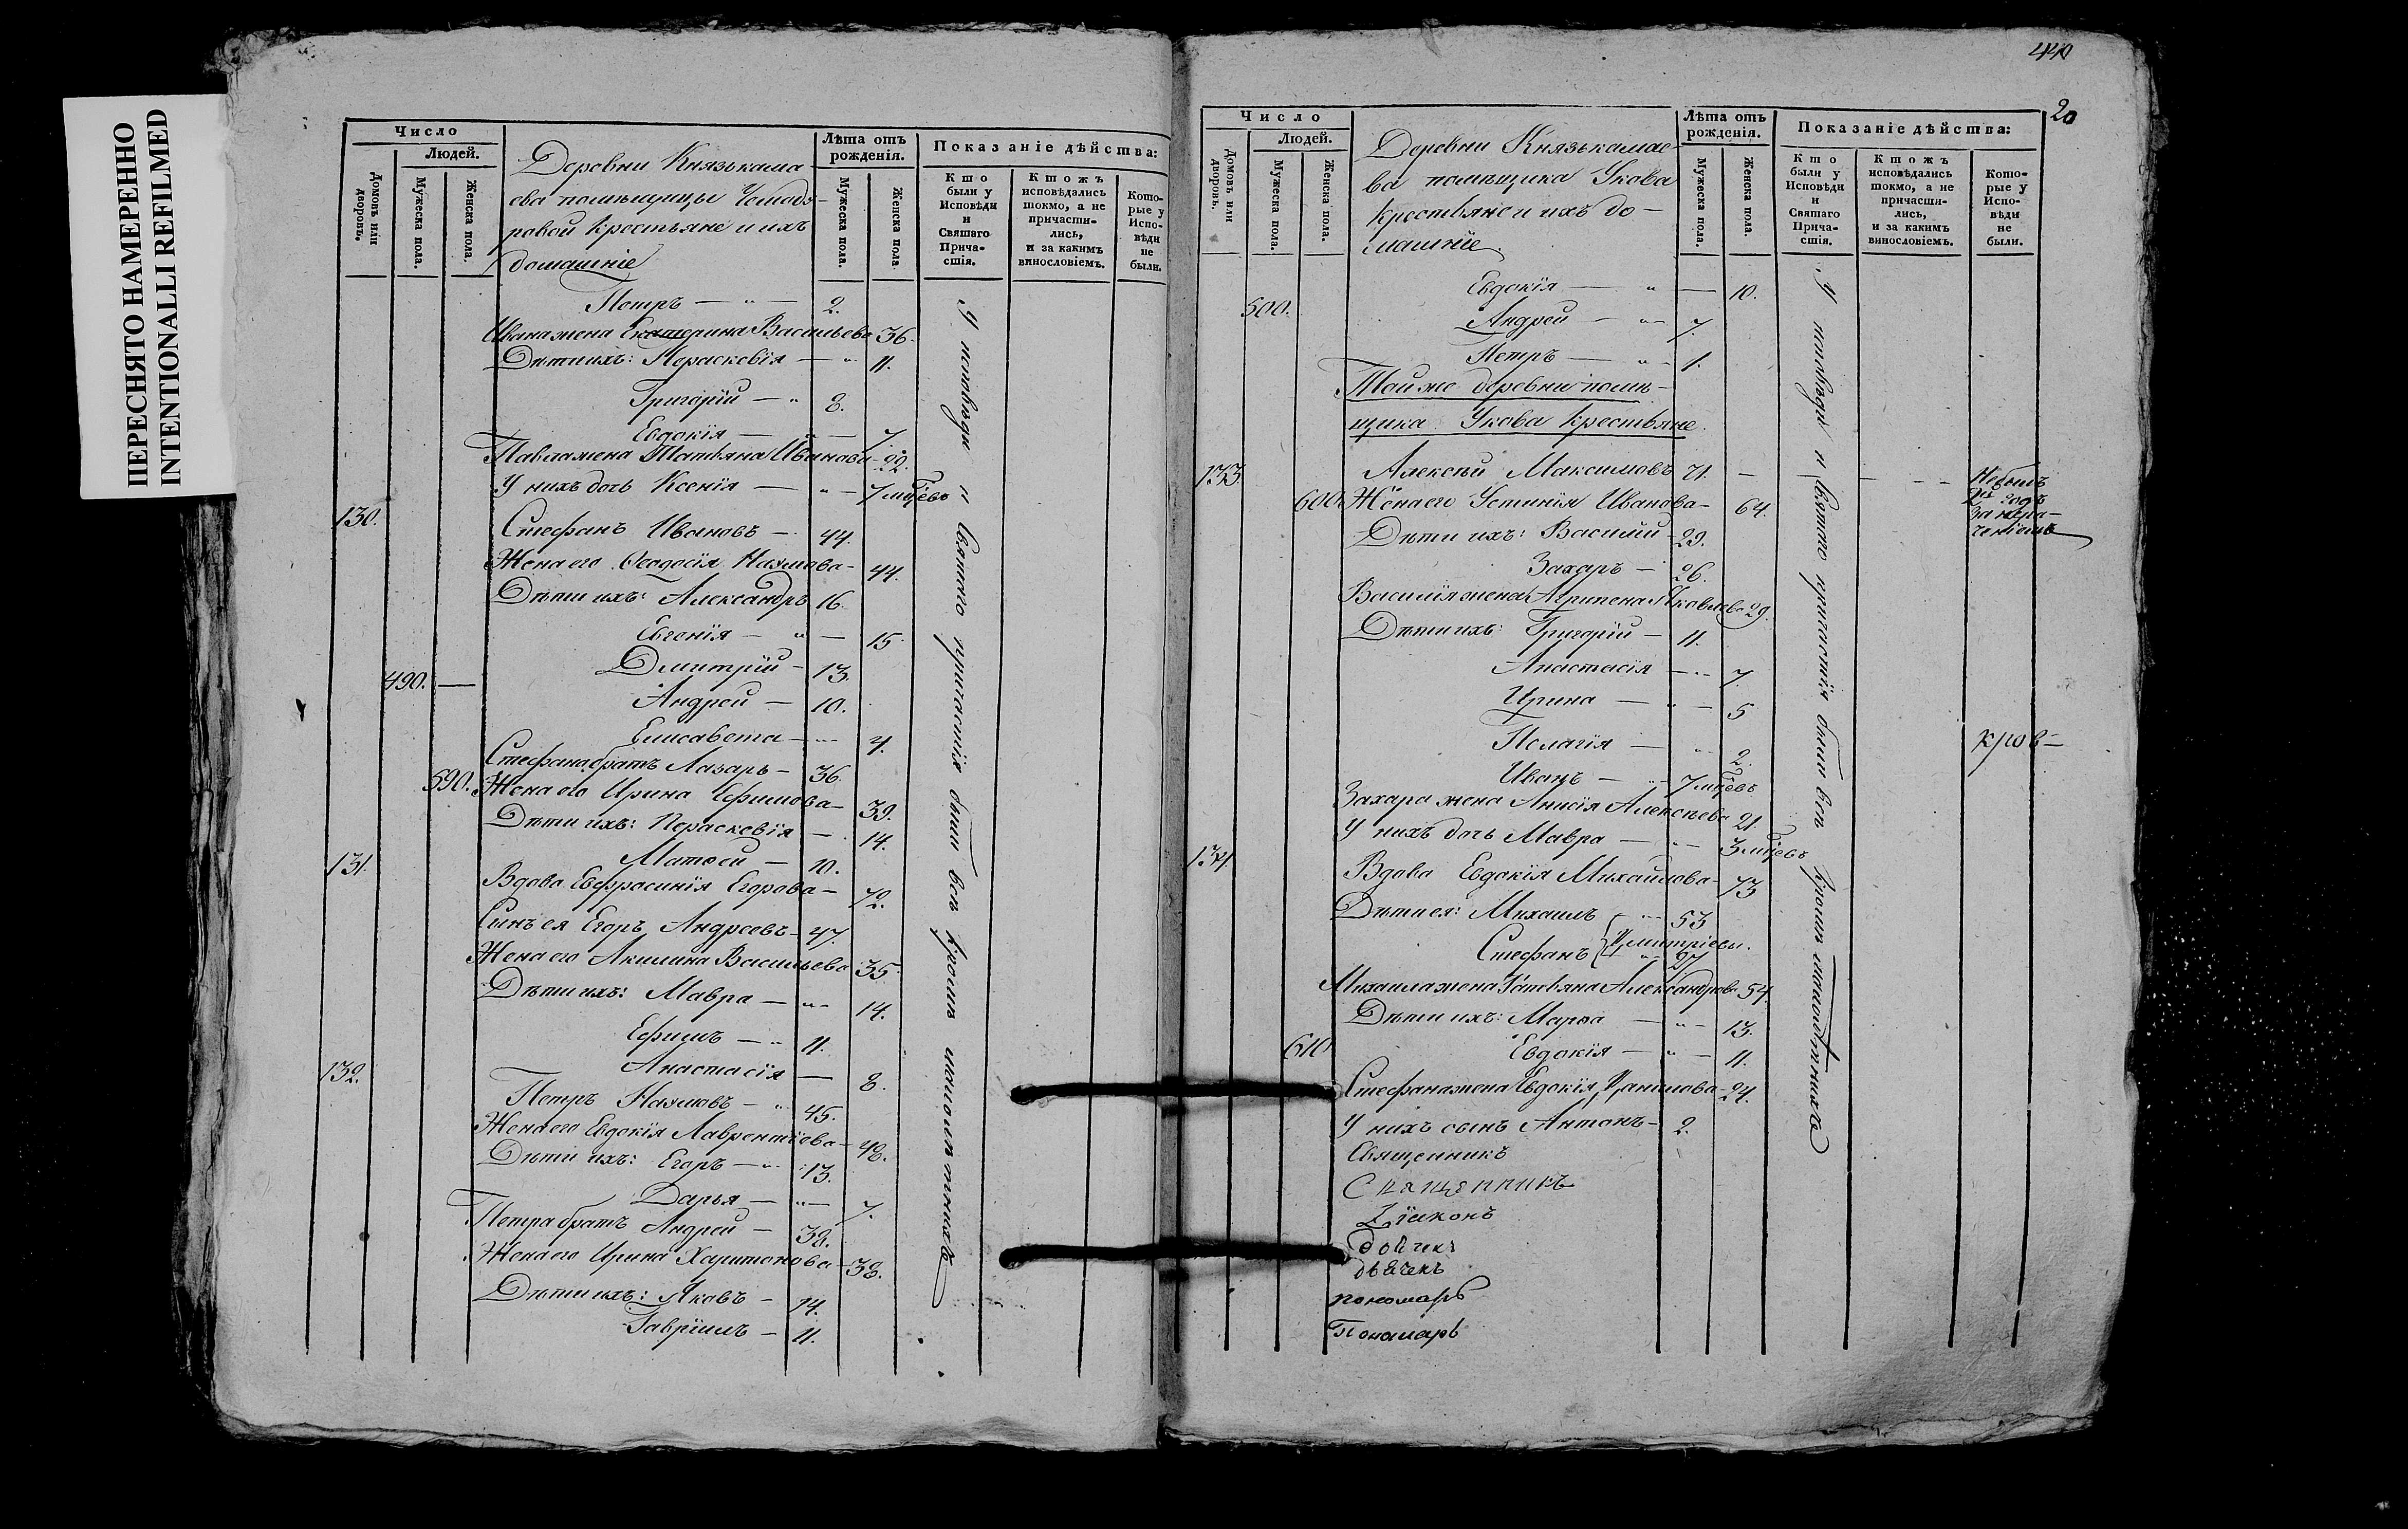 ПЕРЕСНЯТО НАМЕРЕННО
INTENTIONALLI REFILMED
Число
Людей.
Домовъ или дворовъ.
Мужеска пола.
Женска пола.
Деревни Князькама
ева помѣщицы Чемодо-
ровой крестьяне и ихъ
домашніе
Лѣта отъ
рожденія.
Мужеска пола.
Женска пола.
Показаніе дѣйства:
Кто
были у
Исповѣди
и
Святаго
Прича-
стія.
Ктожъ
исповѣдались
токмо, а не
причасти-
лись,
и за какимъ
винословіемъ.
Кото-
рые у
Испо-
вѣди
не
были.
Петръ — „ — 2.
Ивана жена Екатерина Васильева 36.
Дѣти ихъ: Пераскевія — „ 11.
Григорій — „ 8.
Евдокія — „ — 7.
Павла жена Татьяна Иванова — 22.
У нихъ дочь Ксенія — „ — 7 мцевъ
130. Стефанъ Ивановъ — 44.
Жена его Ѳеодосія Наумова — 44.
Дѣти ихъ: Александръ 16.
Евгенія — „ — 15.
Дмитрій — 13.
490. — Андрей — 10.
Елисавета — „ — 4.
Стефана братъ Лазарь — 36.
590. Жена его Ирина Ефимова — 39.
Дѣти ихъ: Пераскевія — 14.
Матѳей — 10.
131. Вдова Евфросинія Егорова — 72.
Сынъ ея Егоръ Андреевъ — 47.
Жена его Акилина Васильева 35.
Дѣти ихъ: Мавра — „ — 14.
Ефимъ — „ 11.
Анастасія — 8.
132. Петръ Наумовъ — „ 45.
Жена его Евдокія Лаврентіева — 48.
Дѣти ихъ: Егоръ — „ 13.
Дарья — „ — 7.
Петра братъ Андрей — 38.
Жена его Ирина Харитонова — 38.
Дѣти ихъ: Яковъ — 14.
Гавріилъ — 11.
У исповѣди и святаго причастія были всѣ кромѣ малолѣтнихъ
440
20
Число
Людей.
Домовъ или дворовъ.
Мужеска пола.
Женска пола.
Деревни Князькамае-
ва помѣщика Укова
крестьяне и ихъ до-
машніе.
Лѣта отъ
рожденія.
Мужеска пола.
Женска пола.
Показаніе дѣйства:
Кто
были у
Исповѣди
и
Святаго
Прича-
стія.
Ктожъ
исповѣдались
токмо, а не
причасти-
лись,
и за какимъ
винословіемъ.
Кото-
рые у
Испо-
вѣди
не
были.
Евдокія — „ — 10.
500. Андрей — „ — 7.
Петръ — „ — 1.
Той же деревни помѣ-
щика Укова крестьяне.
133. Алексѣй Максимовъ 71.
Небылъ
2й годъ
за нера-
ченіемъ
600. Жена его Устинія Иванова — 64.
Дѣти ихъ: Василій — 29.
Захаръ — 26.
Василія жена Агрипена Яковлева 29.
Дѣти ихъ: Григорій — 11.
Анастасія — „ — 7.
Ирина — „ — 5
Пелагія — „ — 2.
кров —
Иванъ — „ — 7 мцевъ
Захара жена Анисія Алексѣева 21.
У нихъ дочь Мавра — „ — 3 мцевъ
134. Вдова Евдокія Михайлова — 73
Дѣти ея: Михаилъ „ — 53
Стефанъ { Дмитріевы. „ — 27
Михаила жена Татьяна Александрова 54.
Дѣти ихъ: Марѳа — „ — 13.
610 Евдокія — „ — 11.
Стефана жена Евдокія Данилова — 24.
У нихъ сынъ Антонъ — 2.
У исповѣди и святаго причастія были всѣ кромѣ малолѣтнихъ
Священникъ
Священникъ
Діаконъ
дьячекъ
дьячекъ
пономарь
Пономарь